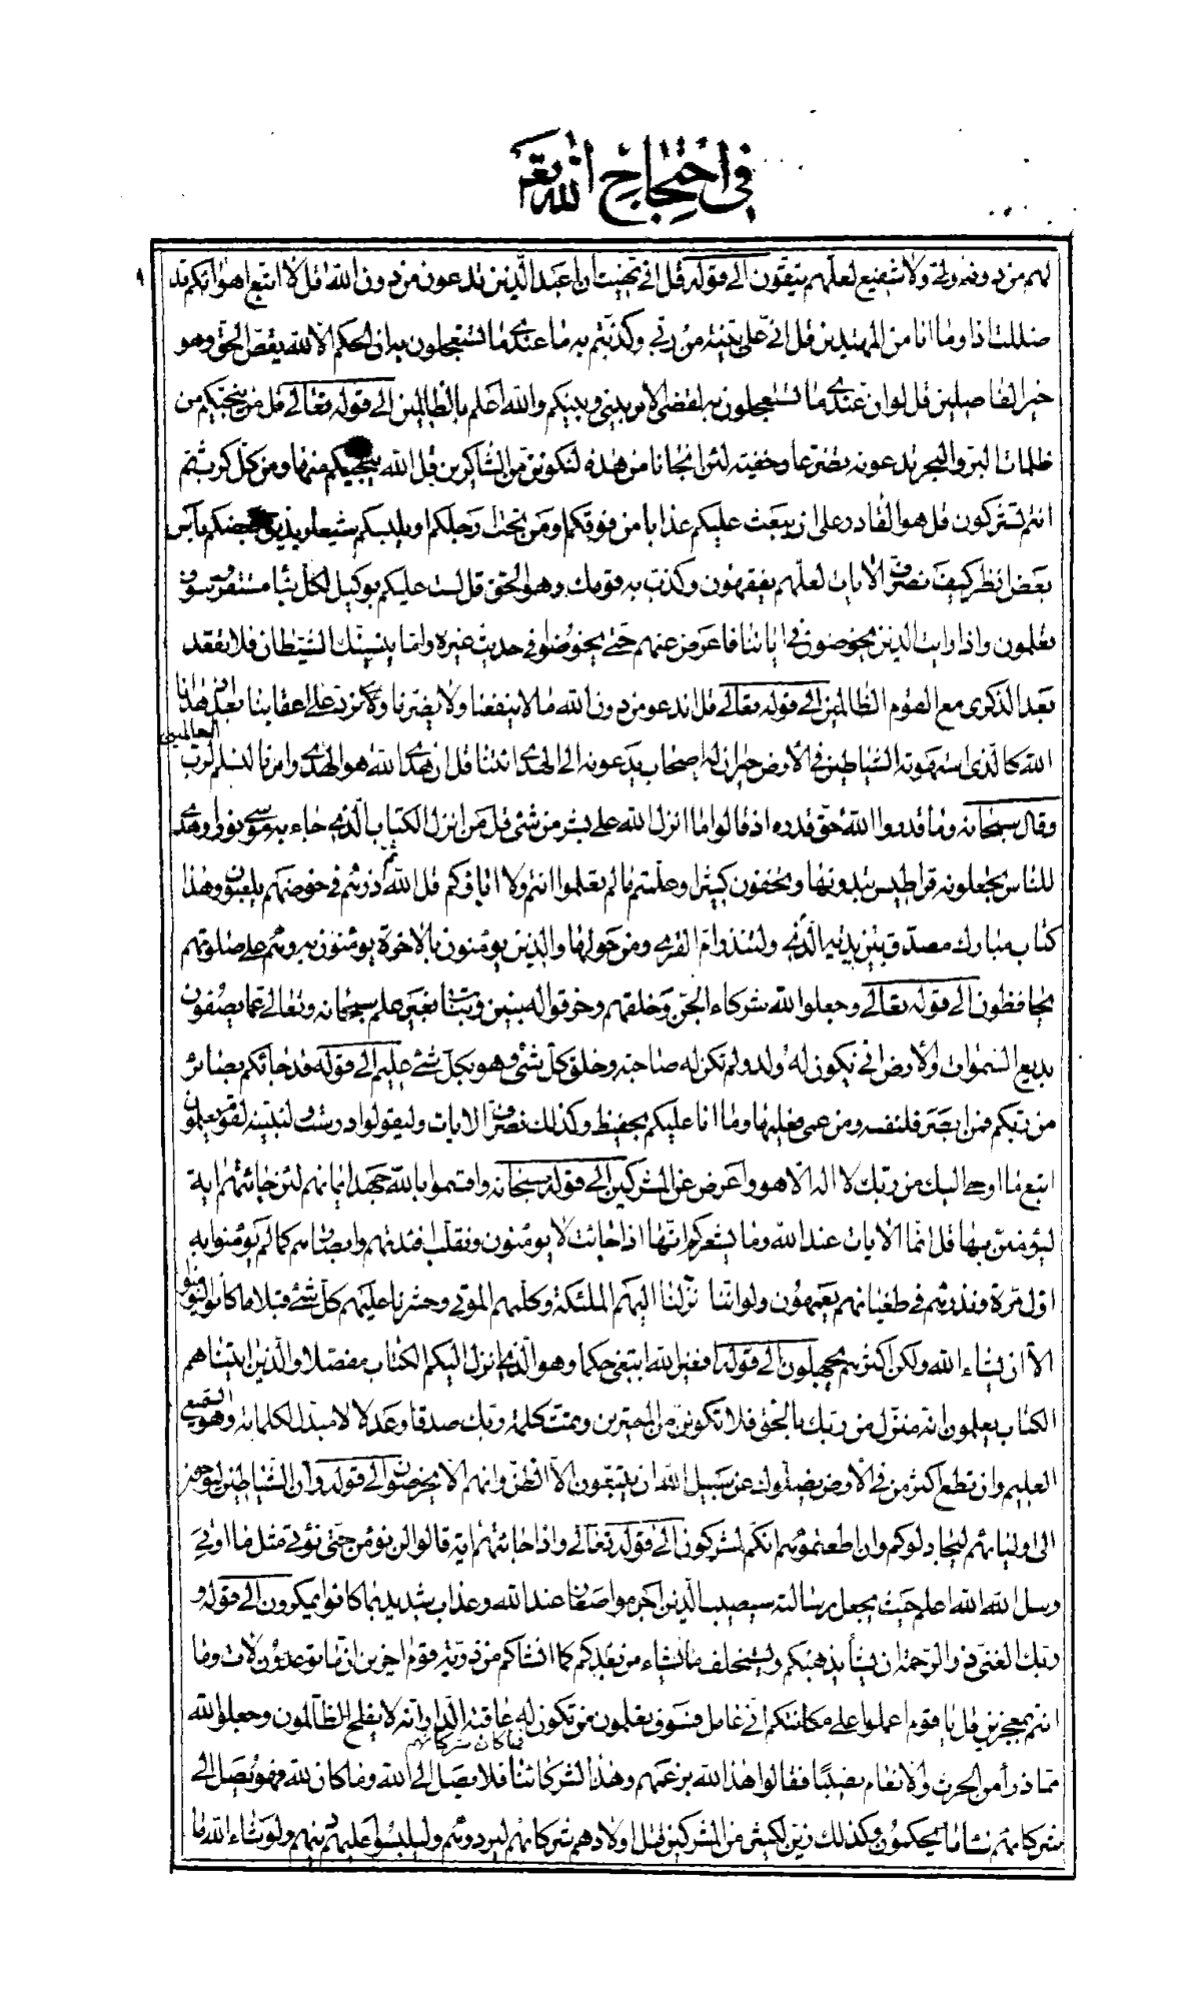 في احتجاج الله تعـ
٩
لهم من دونه ولي ولا شفيع لعلهم يتقون الى قوله قل اني نهيت ان اعبد الذين تدعون من دون الله قل لا اتبع اهوائكم قد
ضللت اذا وما انا من المهتدين قل اني على بينة من ربي وكذبتم به ما عندي ما تستعجلون به ان الحكم الا لله يقص الحق وهو
خير الفاصلين قل لو ان عندي ما تستعجلون به لقضي الامر بيني وبينكم والله اعلم بالظالمين الى قوله تعالى قل من ينجيكم من
ظلمات البر والبحر تدعونه تضرعا وخفية لئن انجانا من هذه لنكونن من الشاكرين قل الله ينجيكم منها ومن كل كرب ثم
انتم تشركون قل هو القادر على ان يبعث عليكم عذابا من فوقكم او من تحت ارجلكم او يلبسكم شيعا ويذيق بعضكم بأس
بعض انظر كيف نصرف الايات لعلهم يفقهون وكذب به قومك وهو الحق قل لست عليكم بوكيل لكل نبأ مستقر وسوف
تعلمون واذا رايت الذين يخوضون في اياتنا فاعرض عنهم حتى يخوضوا في حديث غيره واما ينسينك الشيطان فلا تقعد
بعد الذكرى مع القوم الظالمين الى قوله تعالى قل اندعو من دون الله ما لا ينفعنا ولا يضرنا ونرد على اعقابنا بعد اذ هدانا
الله كالذي استهوته الشياطين في الأرض حيران له اصحاب يدعونه الى الهدى ائتنا قل ان هدى الله هو الهدى وامرنا لنسلم لرب العالمين
وقال سبحانه وما قدروا الله حق قدره اذ قالوا ما انزل الله على بشر من شئ قل من انزل الكتاب الذي جاء به موسى نورا وهدى
للناس تجعلونه قراطيس تبدونها وتخفون كثيرا وعلمتم ما لم تعلموا انتم ولا اباؤكم قل الله ثم ذرهم في خوضهم يلعبون وهذا
كتاب مبارك مصدق بين يديه الذي ولتنذر ام القرى ومن حولها والذين يؤمنون بالاخرة يؤمنون به وهم على صلوتهم
يحافظون الى قوله تعالى وجعلوا لله شركاء الجن وخلقهم وخرقوا له بنين وبنات بغير علم سبحانه وتعالى عما يصفون
بديع السموات والأرض انى يكون له ولد ولم تكن له صاحبة وخلق كل شئ وهو بكل شئ عليم الى قوله قد جائكم بصائر
من ربكم فمن ابصر فلنفسه ومن عمي فعليها وما انا عليكم بحفيظ وكذلك نصرف الايات وليقولوا درست ولنبينه لقوم يعلمون
اتبع ما اوحي اليك من ربك لا اله الا هو واعرض عن المشركين الى قوله سبحانه واقسموا بالله جهد ايمانهم لئن جائتهم اية
ليؤمنن بها قل انما الايات عند الله وما يشعركم انها اذا جائت لا يؤمنون ونقلب افئدتهم وابصارهم كما لم يؤمنوا به
اول مرة ونذرهم في طغيانهم يعمهون ولو اننا نزلنا اليهم الملئكة وكلمهم الموتى وحشرنا عليهم كل شئ قبلا ما كانوا ليؤمنوا
الا ان يشاء الله ولكن اكثرهم يجهلون الى قوله افغير الله ابتغي حكما وهو الذي انزل اليكم الكتاب مفصلا والذين اتيناهم
الكتاب يعلمون انه منزل من ربك بالحق فلا تكونن من الممترين وتمت كلمة ربك صدقا وعدلا لا مبدل لكلماته وهو السميع
العليم وان تطع اكثر من في الأرض يضلوك عن سبيل الله ان يتبعون الا الظن وان هم الا يخرصون الى قوله وان الشياطين ليوحون
الى اوليائهم ليجادلوكم وان اطعتموهم انكم لمشركون الى قوله تعالى واذا جائتهم اية قالوا لن نؤمن حتى نؤتى مثل ما اوتي
رسل الله الله اعلم حيث يجعل رسالته سيصيب الذين اجرموا صغار عند الله وعذاب شديد بما كانوا يمكرون الى قوله و
ربك الغني ذو الرحمة ان يشأ يذهبكم ويستخلف ما يشاء من بعدكم كما انشاكم من ذرية قوم اخرين ان ما توعدون لات وما
انتم بمعجزين قل يا قوم اعملوا على مكانتكم اني عامل فسوف تعلمون من تكون له عاقبة الدار انه لا يفلح الظالمون وجعلوا لله
مما ذرأ من الحرث والانعام نصيبا فقالوا هذا لله بزعمهم وهذا لشركائنا فما كان لشركائهم فلا يصل الى الله وما كان لله فهو يصل الى
شركائهم ساء ما يحكمون وكذلك زين لكثير من المشركين قتل اولادهم شركائهم ليردوهم وليلبسوا عليهم دينهم ولو شاء الله ما